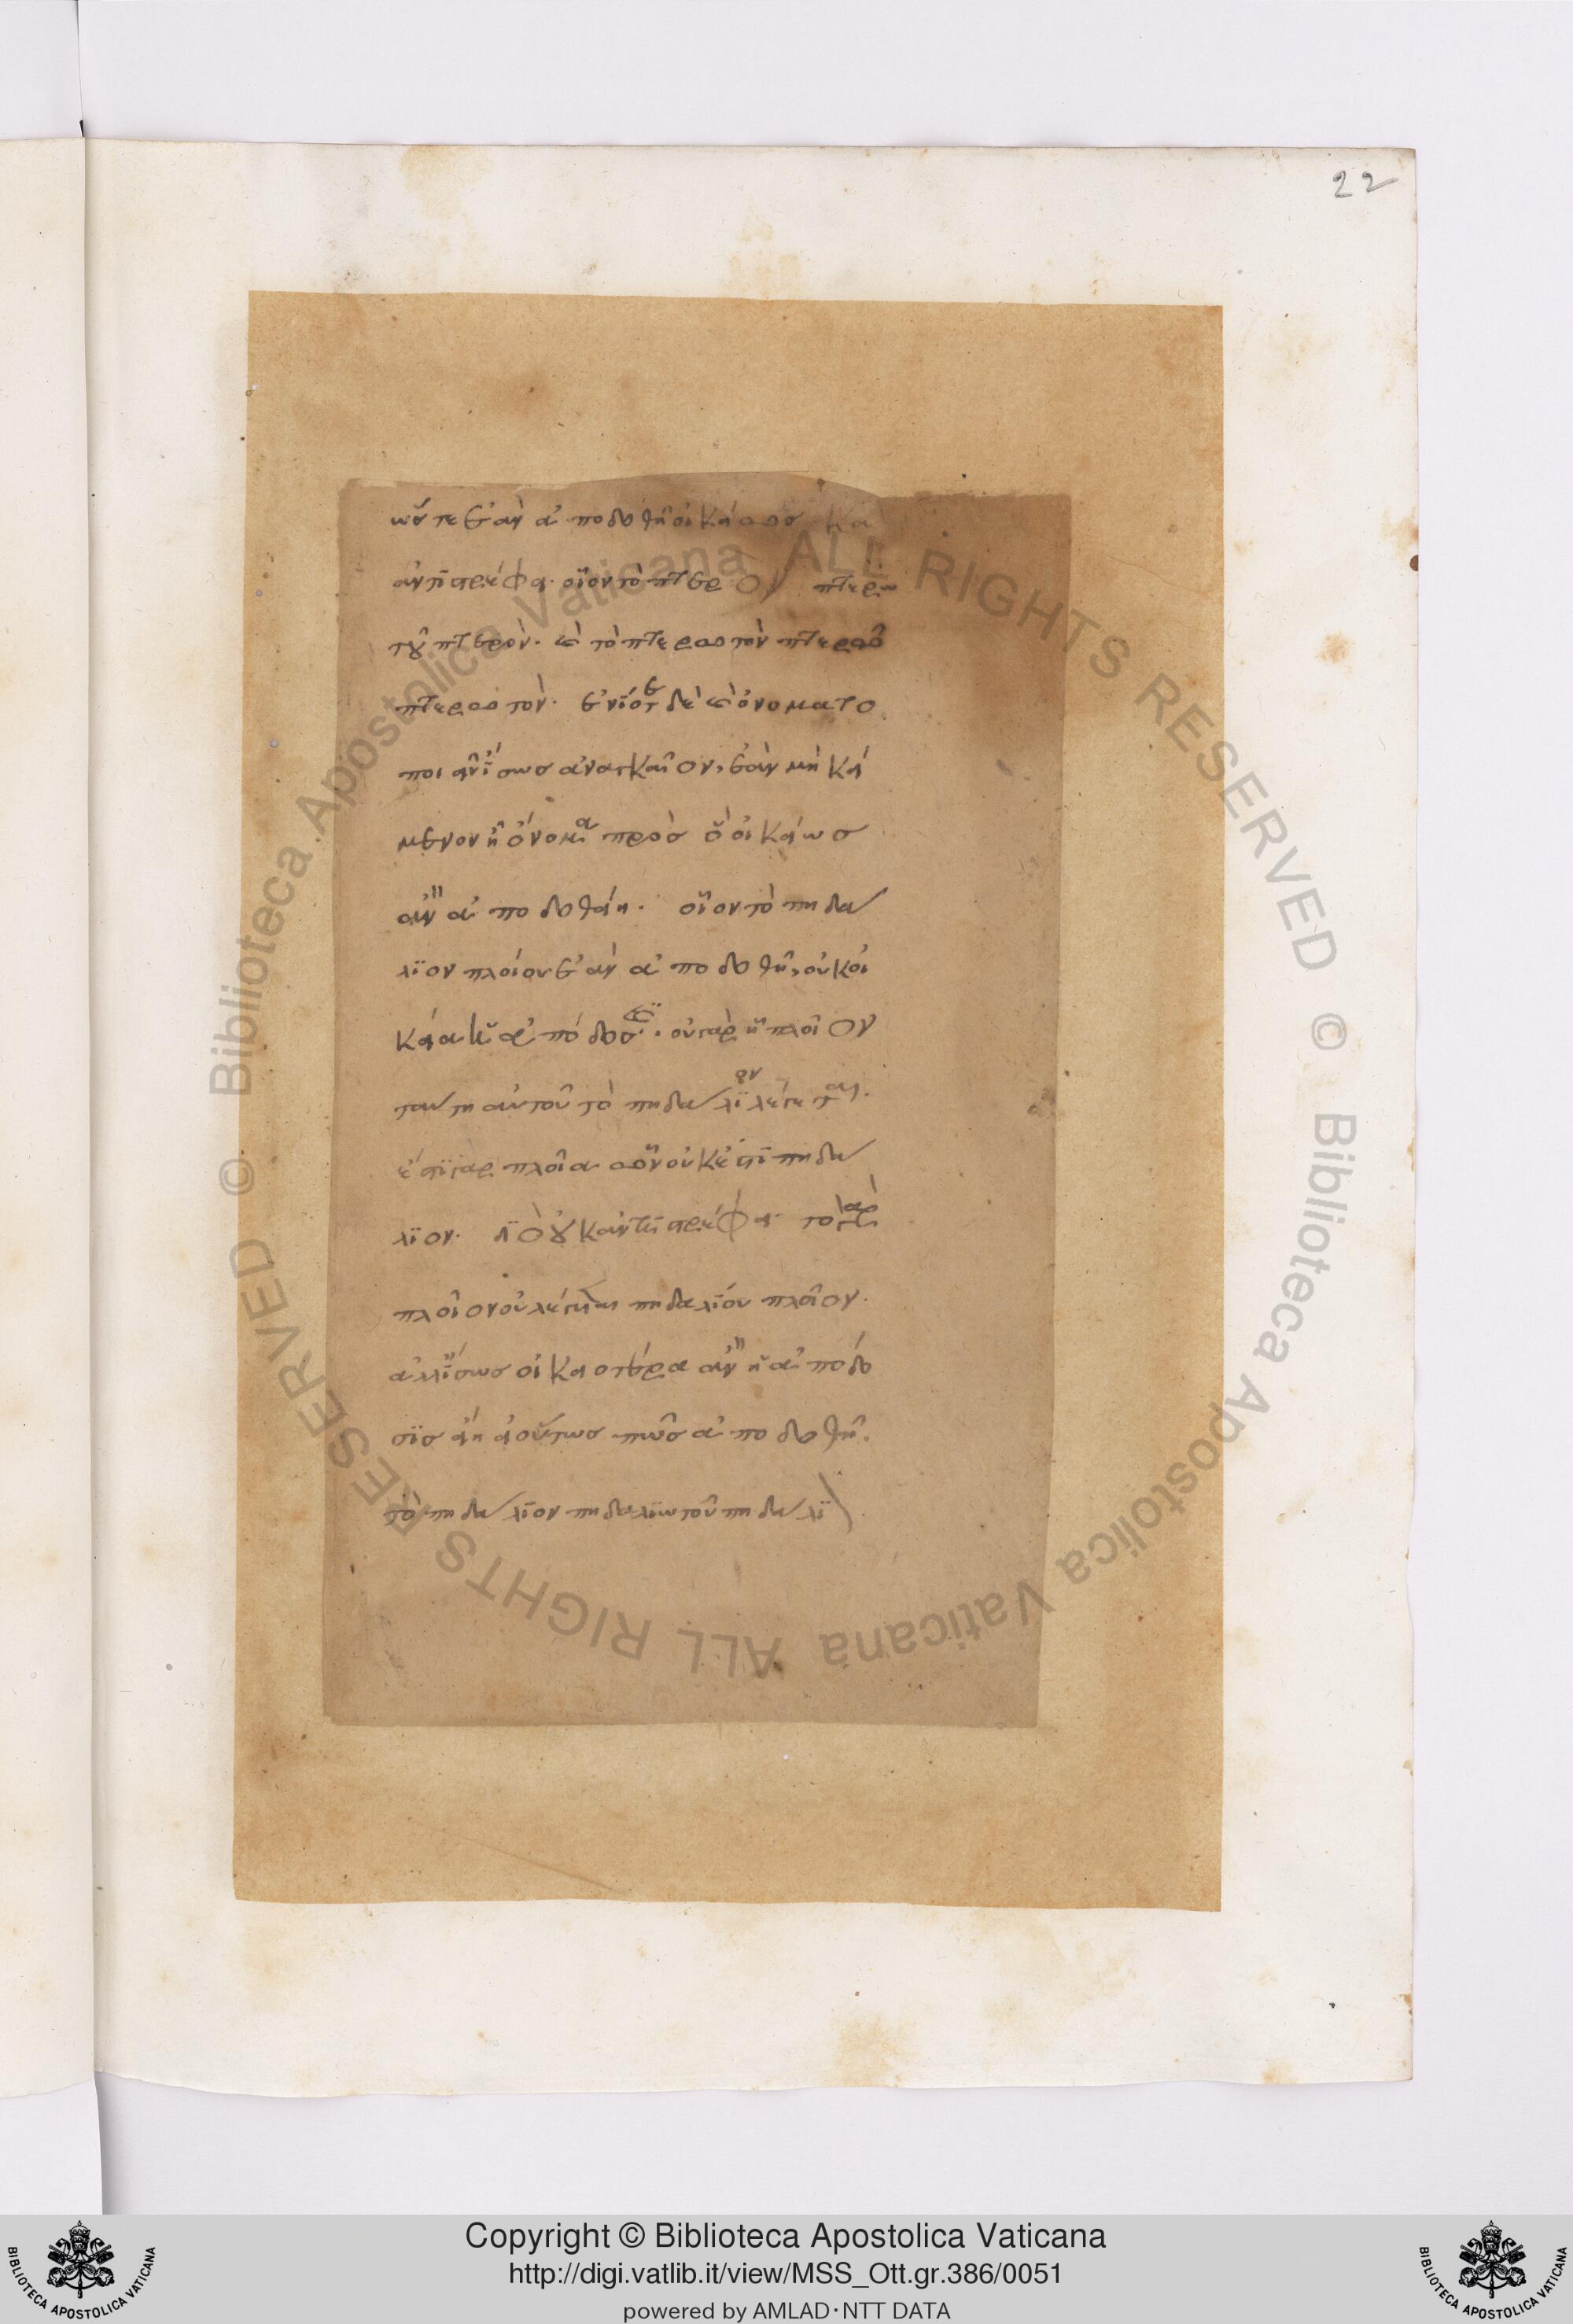 22
ὥστε ἐὰν ἀποδοθῆ οἰκείως κα
ἀντιστρέφει. οἷον τὸ πτερὸν πτερω
τοῦ πτερόν. καὶ τὸ πτερωτὸν πτερῶ
πτερωτόν. ἐνίοτε δὲ καὶ ὀνοματο
ποιεῖν ἴσως ἀναγκαῖον, ἐὰν μὴ κεί
μενον ἦ ὄνομα πρὸς ὃ οἰκείως
ἂν ἀποδοθείη. οἷον τὸ πηδά
λιον πλοίου ἐὰν ἀποδοθῆ, οὐκ οἰ
κεία ἡ ἀπόδοσις. οὐ γὰρ ἧ πλοῖον
ταύτη αὐτοῦ τὸ πηδάλιον λέγεται.
ἔστι γὰρ πλοῖα ὧν οὐκ ἔστι πηδά
λιον. διὸ οὐκ ἀντιστρέφει. τὸ γὰρ
πλοῖον οὐ λέγεται πηδαλίου πλοῖον.
ἀλλ' ἴσως οἰκειοτέρα ἂν ἡ ἀπόδο
σις εἴη εἰ οὕτως πως ἀποδοθῆ.
τὸ πηδάλιον πηδαλιωτοῦ πηδάλι
Copyright © Biblioteca Apostolica Vaticana
http://digi.vatlib.it/view/MSS_Ott.gr.386/0051
powered by AMLAD·NTT DATA
BIBLIOTECA APOSTOLICA VATICANA
BIBLIOTECA APOSTOLICA VATICANA
© Biblioteca Apostolica Vaticana ALL RIGHTS RESERVED
© Biblioteca Apostolica Vaticana ALL RIGHTS RESERVED